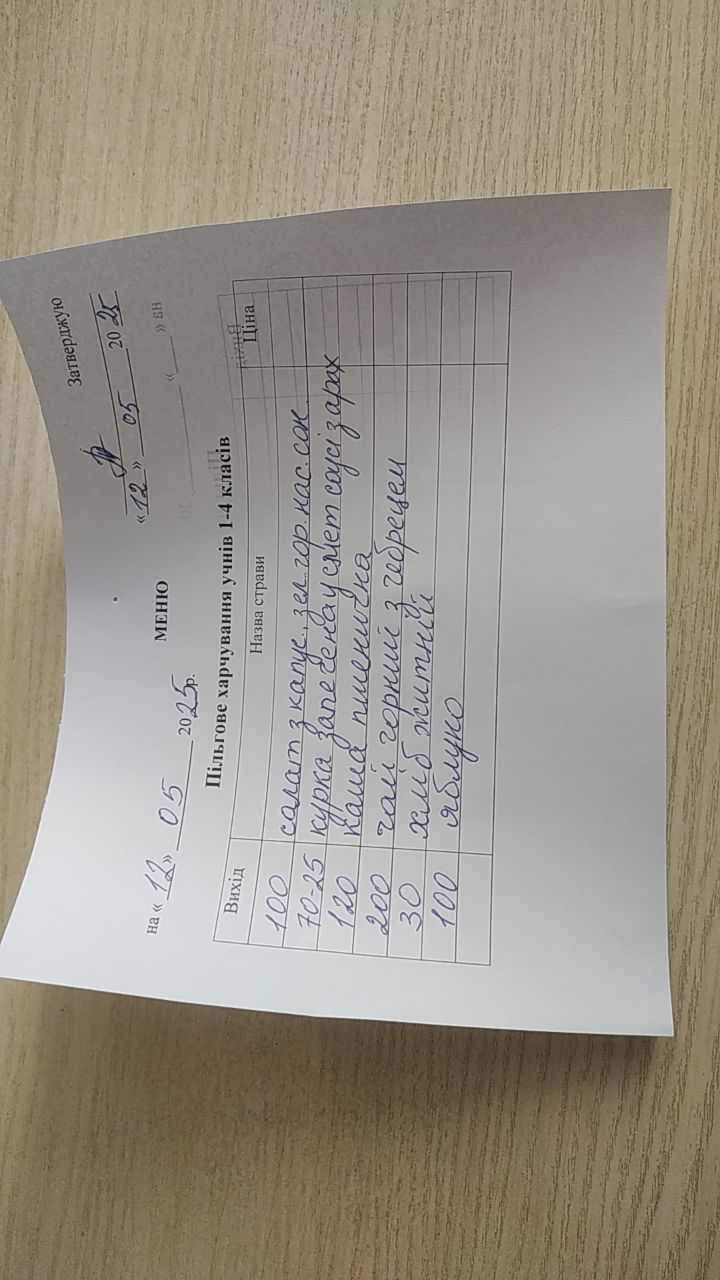 Затверджую
«12» 05 2025
МЕНЮ
на «12» 05 2025р.
Пільгове харчування учнів 1-4 класів
Вихід Назва страви Ціна
100 салат з капус., зел. гор. нас. сон.
70-25 курка запечена у смет соусі з арах
120 каша пшенична
200 чай чорний з чебрецем
30 хліб житній
100 яблуко